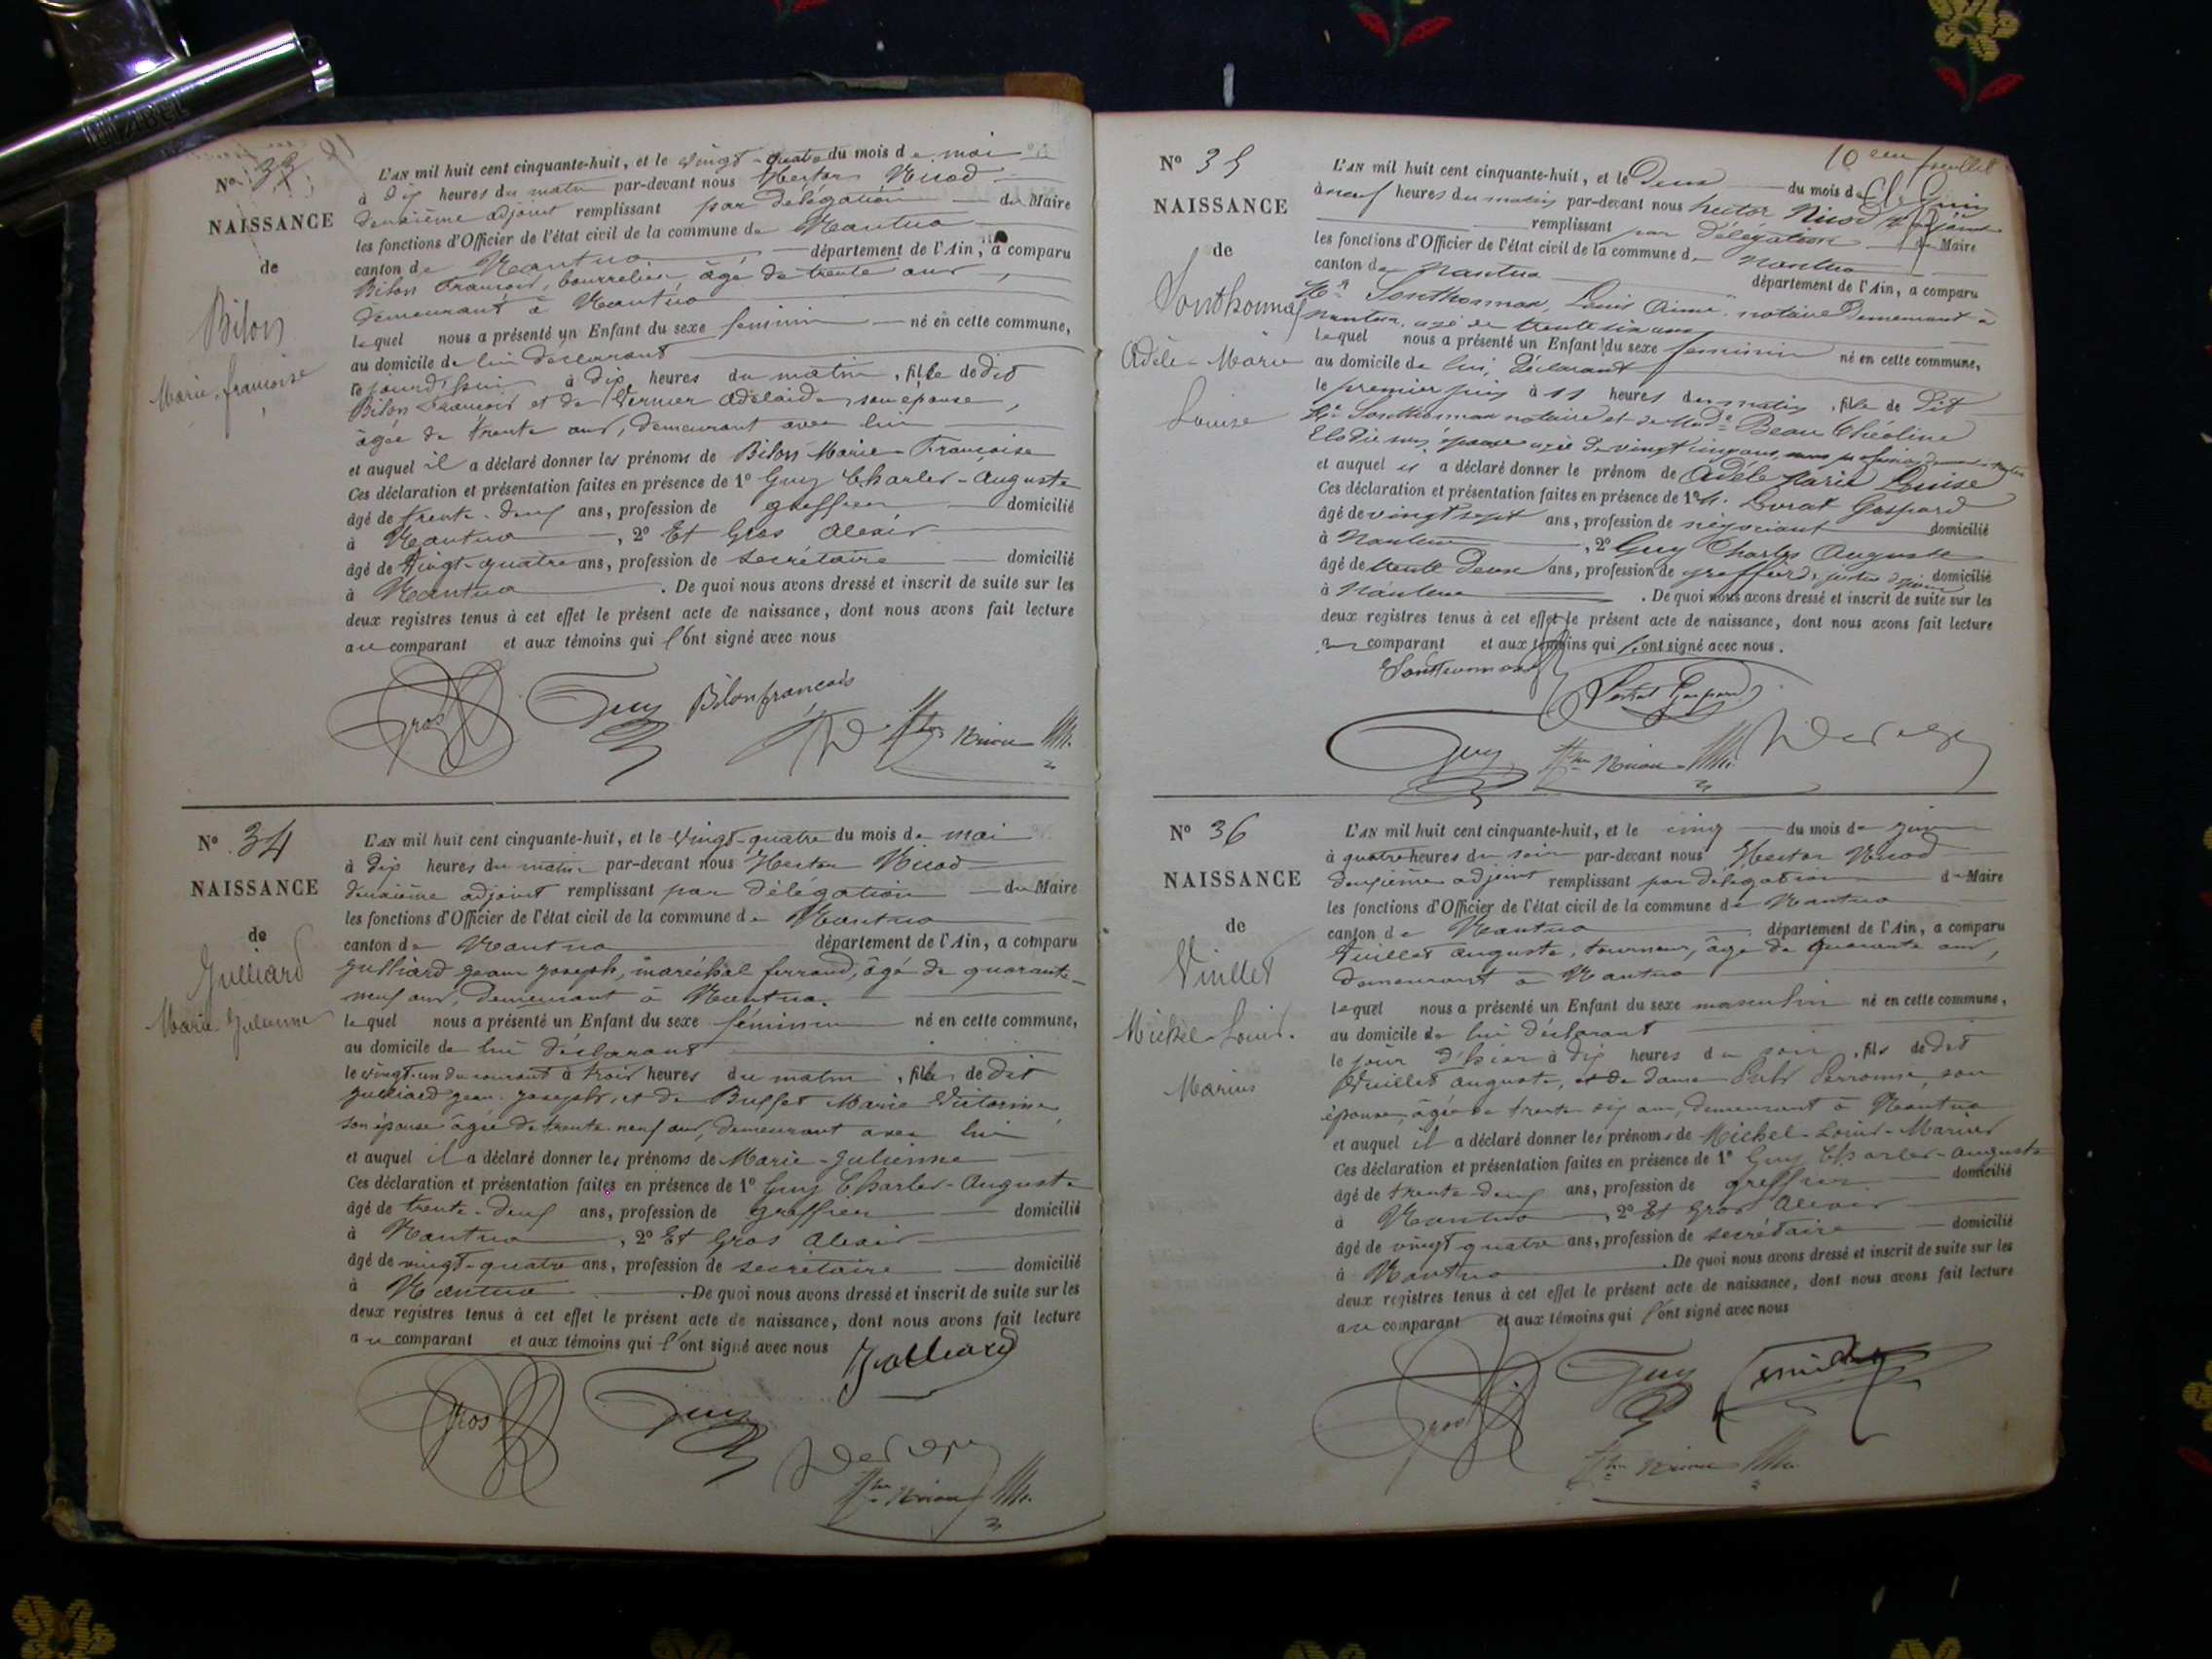 N° 33
NAISSANCE
de
Bilon
Marie-françoise
L'AN mil huit cent cinquante-huit, et le vingt-quatre du mois de mai
à dix heures du matin par-devant nous Hector Nicod
deuxième adjoint remplissant par délégation du Maire
les fonctions d'Officier de l'état civil de la commune de Nantua
canton de Nantua département de l'Ain, a comparu
Bilon François, bourrelier âgé de trente ans,
demeurant à Nantua
lequel nous a présenté un Enfant du sexe féminin né en cette commune,
au domicile de lui déclarant
le jourd'hui à dix heures du matin, fille de dit
Bilon François et de Vernier Adelaïde, son épouse,
âgée de trente ans, demeurant avec lui
et auquel il a déclaré donner les prénoms de Bilon Marie-Françoise
Ces déclaration et présentation faites en présence de 1° Guy Charles-Auguste
âgé de trente-deux ans, profession de greffier domicilié
à Nantua, 2° Et Gros Alexis
âgé de vingt-quatre ans, profession de secrétaire domicilié
à Nantua. De quoi nous avons dressé et inscrit de suite sur les
deux registres tenus à cet effet le présent acte de naissance, dont nous avons fait lecture
au comparant et aux témoins qui l'ont signé avec nous
Gros Guy Bilon françois
N° 34
NAISSANCE
de
Julliard
Marie-Julienne
L'AN mil huit cent cinquante-huit, et le vingt-quatre du mois de mai
à dix heures du matin par-devant nous Hector Nicod
deuxième adjoint remplissant par délégation du Maire
les fonctions d'Officier de l'état civil de la commune de Nantua
canton de Nantua département de l'Ain, a comparu
Julliard Jean Joseph, maréchal ferrand, âgé de quarante-
neuf ans, demeurant à Nantua.
lequel nous a présenté un Enfant du sexe féminin né en cette commune,
au domicile de lui déclarant
le vingt-un du courant à trois heures du matin, fille de dit
Julliard Jean-Joseph, et de Buffet Marie Victorine,
son épouse âgée de trente-neuf ans, demeurant avec lui
et auquel il a déclaré donner les prénoms de Marie-Julienne
Ces déclaration et présentation faites en présence de 1° Guy Charles-Auguste
âgé de trente-deux ans, profession de greffier domicilié
à Nantua, 2° Et Gros Alexis
âgé de vingt-quatre ans, profession de secrétaire domicilié
à Nantua. De quoi nous avons dressé et inscrit de suite sur les
deux registres tenus à cet effet le présent acte de naissance, dont nous avons fait lecture
au comparant et aux témoins qui l'ont signé avec nous
Julliard
Gros Guy
10 eme feuillet
N° 35
NAISSANCE
de
Sonthonnax
Adèle-Marie
Louise
L'AN mil huit cent cinquante-huit, et le Deux du mois de Juin
à neuf heures du matin par-devant nous hector Nicod adjoint
remplissant par délégation du Maire
les fonctions d'Officier de l'état civil de la commune de Nantua
canton de Nantua département de l'Ain, a comparu
Mr Sonthonnax, Louis Aimé notaire Demeurant à
Nantua, agé de trente six ans
lequel nous a présenté un Enfant du sexe féminin né en cette commune,
au domicile de lui, Déclarant
le premier juin à 11 heures du matin, fille de Dit
Mr Sonthonnax notaire et de Made Beau Théoline
Elodie son épouse agée de vingt cinq ans
et auquel il a déclaré donner le prénom de Adèle Marie Louise
Ces déclaration et présentation faites en présence de 1° M. Gaspard
âgé de vingt sept ans, profession de négociant domicilié
à Nantua, 2° Guy Charles Auguste
âgé de trente Deux ans, profession de greffier de justice de paix domicilié
à Nantua. De quoi nous avons dressé et inscrit de suite sur les
deux registres tenus à cet effet le présent acte de naissance, dont nous avons fait lecture
au comparant et aux témoins qui l'ont signé avec nous.
Sonthonnax
Gaspard
Guy
N° 36
NAISSANCE
de
Vuillet
Michel-Louis.
Marius
L'AN mil huit cent cinquante-huit, et le cinq du mois de juin
à quatre heures du soir par-devant nous Hector Nicod
deuxième adjoint remplissant par délégation du Maire
les fonctions d'Officier de l'état civil de la commune de Nantua
canton de Nantua département de l'Ain, a comparu
Vuillet auguste, tourneur, âgé de quarante ans,
demeurant à Nantua
lequel nous a présenté un Enfant du sexe masculin né en cette commune,
au domicile de lui déclarant
le jour d'hier à dix heures du soir, fils de dit
Vuillet auguste, et de dame Perronne, son
épouse, âgée de trente six ans, demeurant à Nantua
et auquel il a déclaré donner les prénoms de Michel-Louis-Marius
Ces déclaration et présentation faites en présence de 1° Guy Charles-Auguste
âgé de trente-deux ans, profession de greffier domicilié
à Nantua, 2° Et Gros Alexis
âgé de vingt quatre ans, profession de secrétaire domicilié
à Nantua. De quoi nous avons dressé et inscrit de suite sur les
deux registres tenus à cet effet le présent acte de naissance, dont nous avons fait lecture
au comparant et aux témoins qui l'ont signé avec nous
Gros Guy